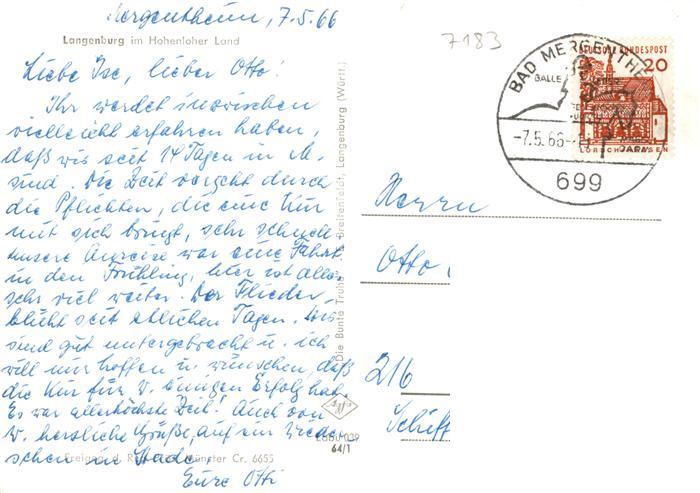 Mergentheim, 7.5.66
Langenburg im Hohenloher Land
Liebe Ise, lieber Otto!
Ihr werdet inzwischen
vielleicht erfahren haben,
daß wir seit 14 Tagen in M.
sind. Die Zeit vergeht durch
die Pflichten, die eine Kur
mit sich bringt, sehr schnell.
unsere Anreise war eine Fahrt
in den Frühling, hier ist alles
sehr viel weiter. Der Flieder
blüht seit etlichen Tagen. Wir
sind gut untergebracht u. ich
will nur hoffen u. wünschen, daß
die Kur für W. einigen Erfolg hat.
Es war allerhöchste Zeit! Auch von
W. herzliche Grüße, auf ein Wieder-
sehen in Stade,
Eure Otti
Freigeg. d. Münster Cr. 6655
Die Bunte Truhe Breitenfeldt, Langenburg (Württ.)
64/1
7183
BAD MERGENTHE
-7.5.66-
699
DEUTSCHE BUNDESPOST
20
LORSCH HESSEN
Herrn
Otto
216
Schiff